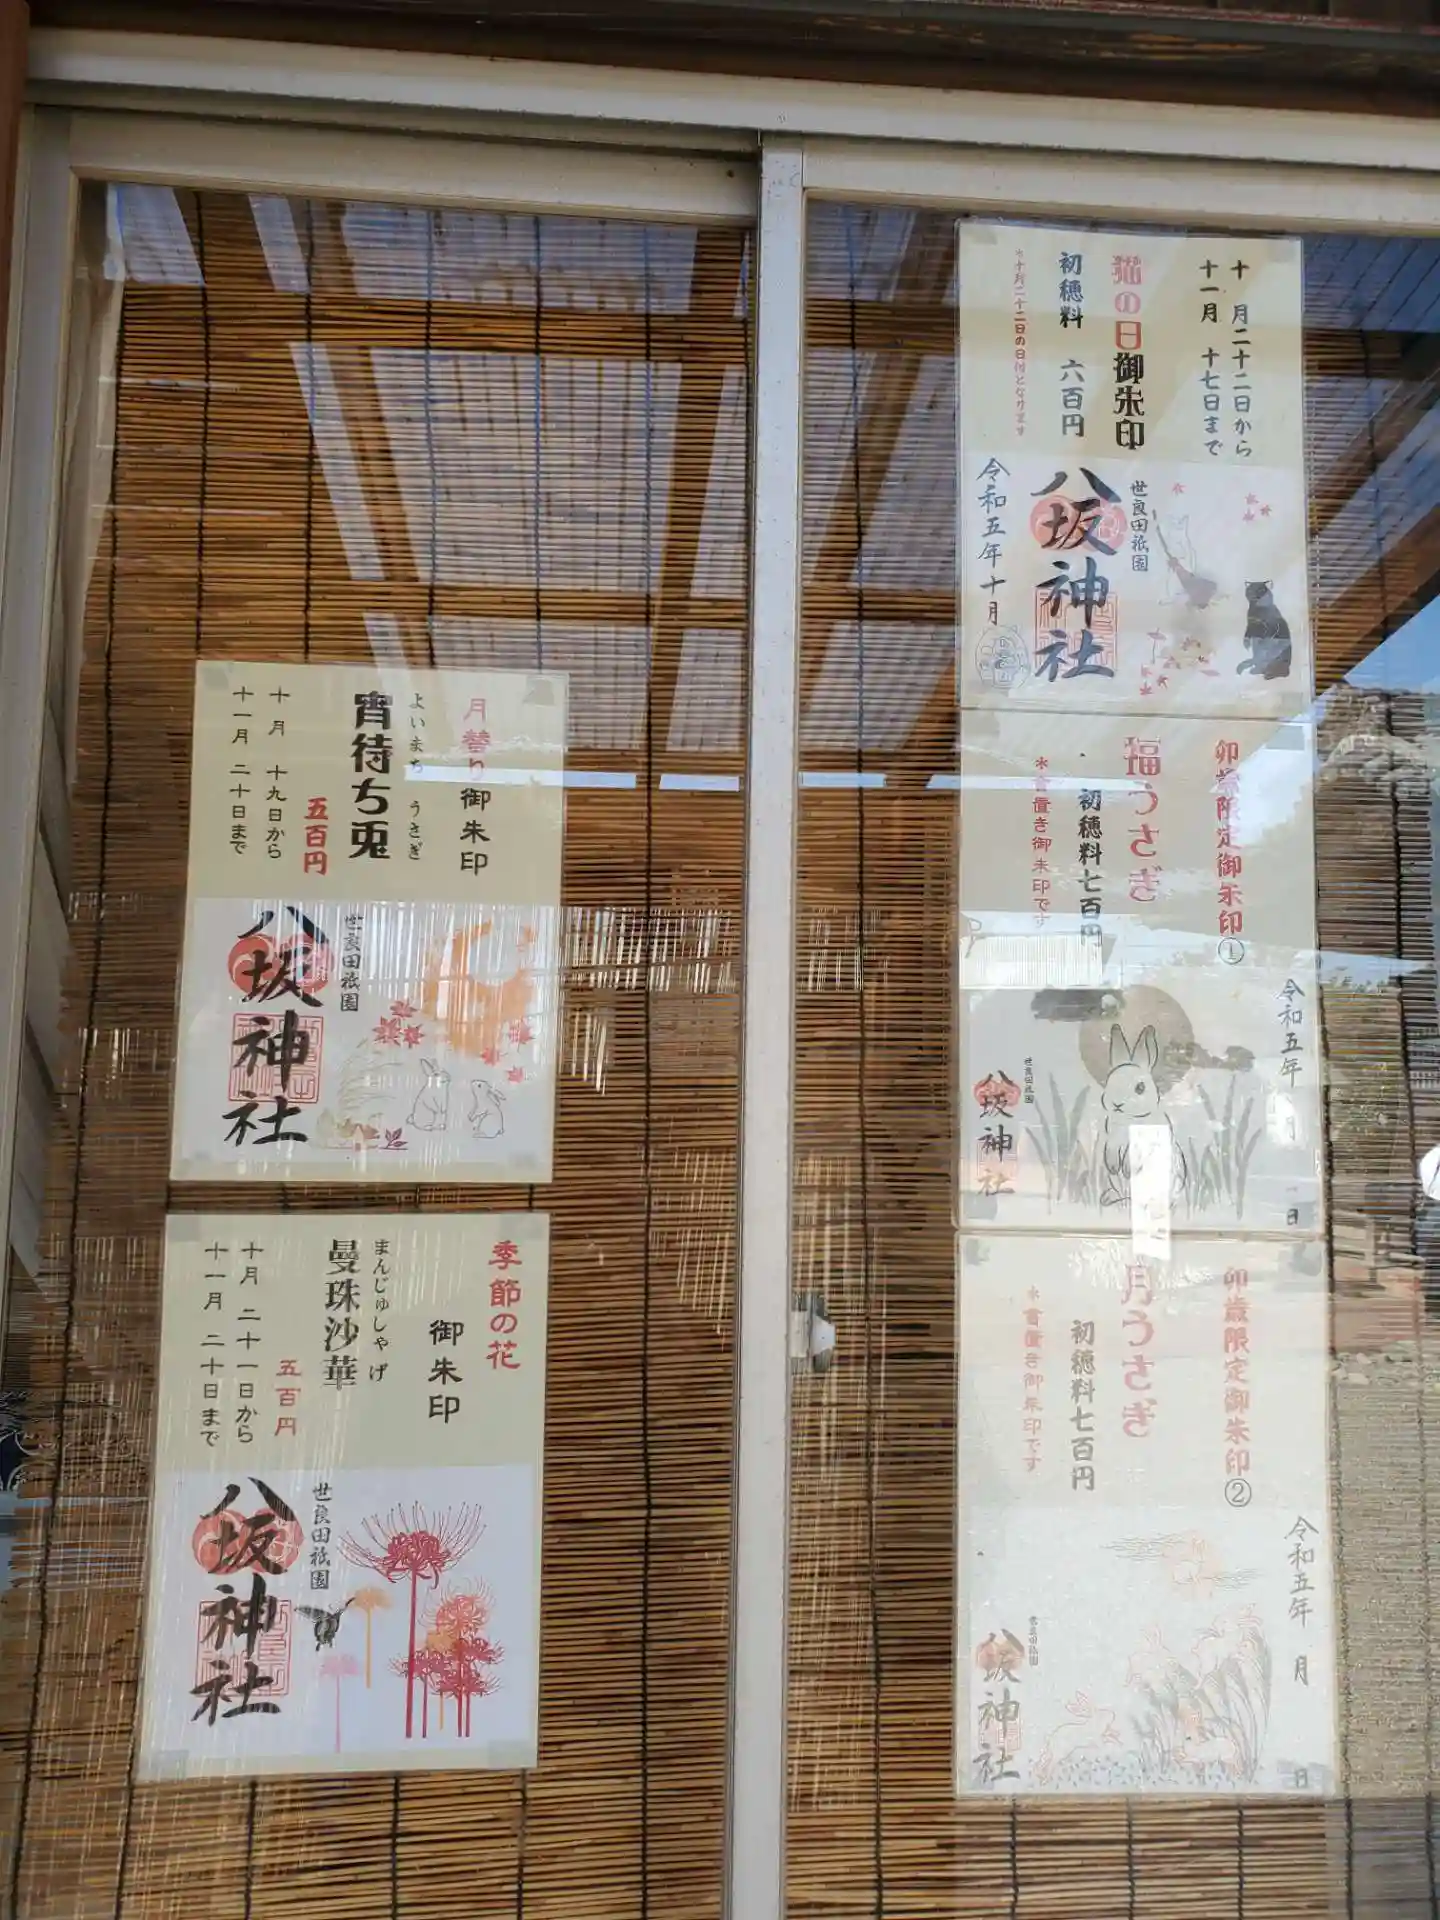 十月二十二日から
十一月 十七日まで
猫の日御朱印
初穂料 六百円
*十月二十二日の日付となります
世良田祇園
八坂神社
令和五年十月
卯歳限定御朱印①
福うさぎ
・初穂料七百円
*書置き御朱印です
令和五年 月 日
世良田祇園
八坂神社
卯歳限定御朱印②
月うさぎ
初穂料七百円
*書置き御朱印です
令和五年 月 日
世良田祇園
八坂神社
月替り御朱印
よいまち うさぎ
宵待ち兎
五百円
十月 十九日から
十一月 二十日まで
世良田祇園
八坂神社
季節の花
御朱印
まんじゅしゃげ
曼珠沙華
五百円
十月 二十一日から
十一月 二十日まで
世良田祇園
八坂神社